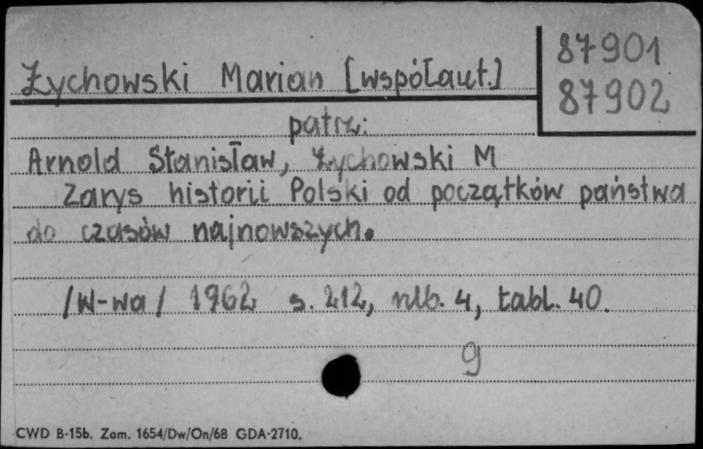 87901
87902
Żychowski Marian [współaut.]
patrz:
Arnold Stanisław, Żychowski M
Zarys historii Polski od początków państwa
do czasów najnowszych.
/W-wa/ 1962 s. 212, nlb. 4, tabl. 40.
9
CWD B-15b. Zam. 1654/Dw/On/68 GDA-2710.